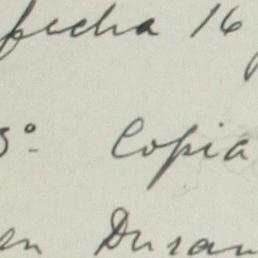 fecha 16
3º- Copia
en Duran